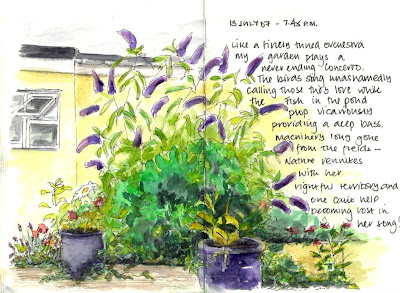 18 JULY 07 - 7.45 P.M.
Like a finely tuned orchestra
my garden plays a
never ending concerto.
The birds song unashamedly
calling those they love while
the fish in the pond
plop vicariously
providing a deep bass.
machinery long gone
from the fields --
Nature
with her
rightful territory and
one can't help
becoming lost in
her song!